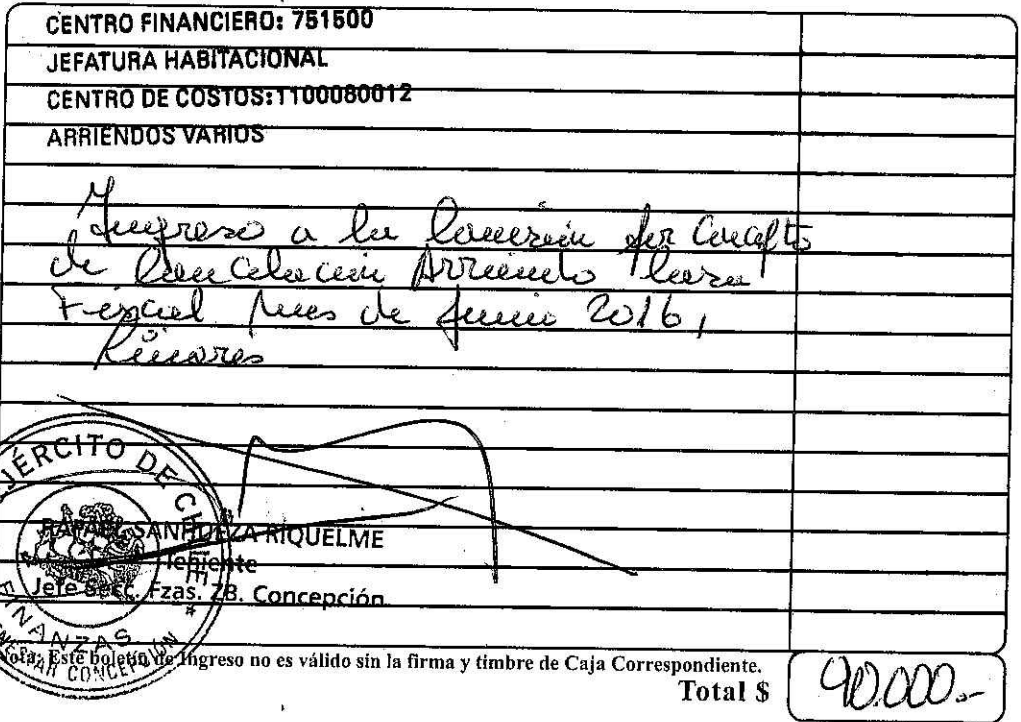 CENTRO FINANCIERO: 751500
JEFATURA HABITACIONAL
CENTRO DE COSTOS: 1100080012
ARRIENDOS VARIOS
Ingreso a la Comisión por Concepto
de Cancelación Arriendo Casa
Fiscal mes de Junio 2016,
Linares
EJÉRCITO DE CHILE
FINANZAS
CONCEPCIÓN
RAFAEL SANHUEZA RIQUELME
Teniente
Jefe Secc. Fzas. ZB. Concepción
Nota: Este boletín de Ingreso no es válido sin la firma y timbre de Caja Correspondiente.
Total $ 90.000.-